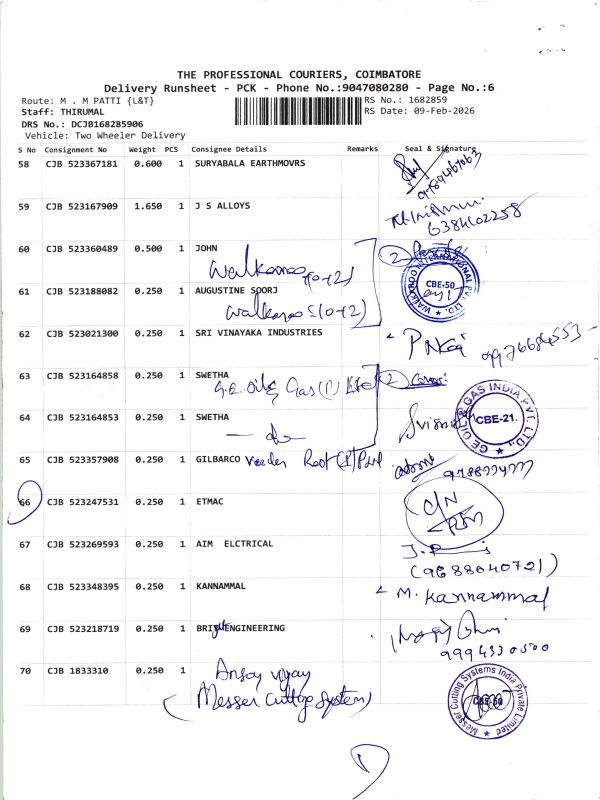 THE PROFESSIONAL COURIERS, COIMBATORE
Delivery Runsheet - PCK - Phone No.:9047080280 - Page No.:6
Route: M . M PATTI {L&T}
RS No.: 1682859
Staff: THIRUMAL
RS Date: 09-Feb-2026
DRS No.: DCJB168285906
Vehicle: Two Wheeler Delivery
S No Consignment No Weight PCS Consignee Details Remarks Seal & Signature
58 CJB 523367181 0.600 1 SURYABALA EARTHMOVRS
59 CJB 523167909 1.650 1 J S ALLOYS
6384602258
60 CJB 523360489 0.500 1 JOHN
Walkaroo
WALKAROO INTERNATIONAL PVT. LTD. CBE-50
61 CJB 523188082 0.250 1 AUGUSTINE SOORJ
Walkaroo
62 CJB 523021300 0.250 1 SRI VINAYAKA INDUSTRIES
63 CJB 523164858 0.250 1 SWETHA
G.E Oil & Gas (I) Ltd
GE OIL & GAS INDIA PVT. LTD. CBE-21.
64 CJB 523164853 0.250 1 SWETHA
65 CJB 523357908 0.250 1 GILBARCO Veeder Root (I) Pvt
66 CJB 523247531 0.250 1 ETMAC
C/N
67 CJB 523269593 0.250 1 AIM ELCTRICAL
(9688040721)
68 CJB 523348395 0.250 1 KANNAMMAL
M. Kannammal
69 CJB 523218719 0.250 1 BRIGHTENGINEERING
9994330500
70 CJB 1833310 0.250 1
Vijay
(Messer Cutting Systems)
Messer Cutting Systems India Private Limited